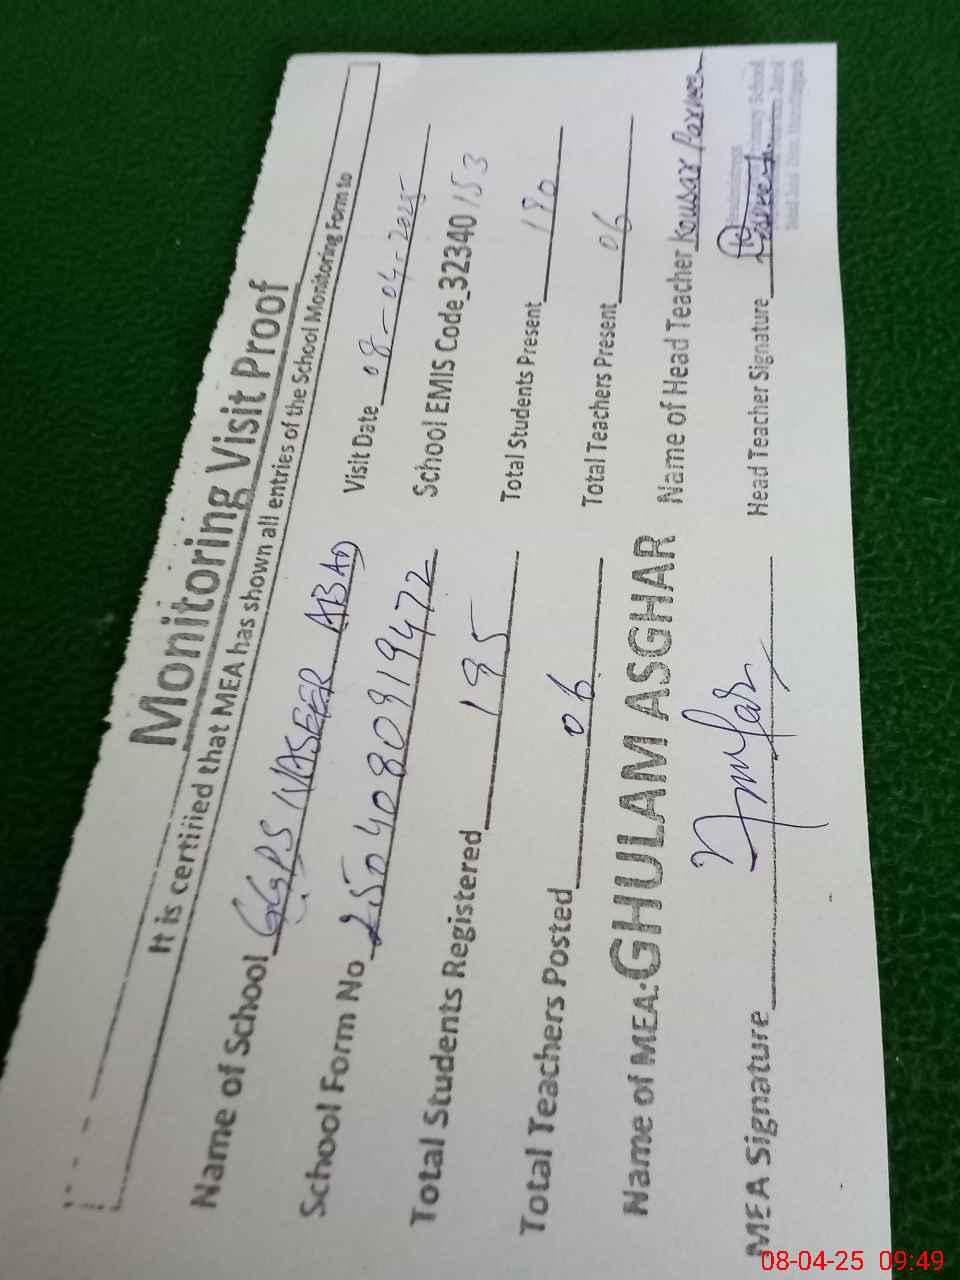 Monitoring Visit Proof
It is certified that MEA has shown all entries of the School Monitoring Form to
Name of School GGPS NASEER ABAD Visit Date 08-04-2025
School Form No 2504080919472 School EMIS Code 32340153
Total Students Registered 195 Total Students Present 190
Total Teachers Posted 06 Total Teachers Present 06
Name of MEA: GHULAM ASGHAR Name of Head Teacher Kousar Parveen
MEA Signature Head Teacher Signature
08-04-25 09:49